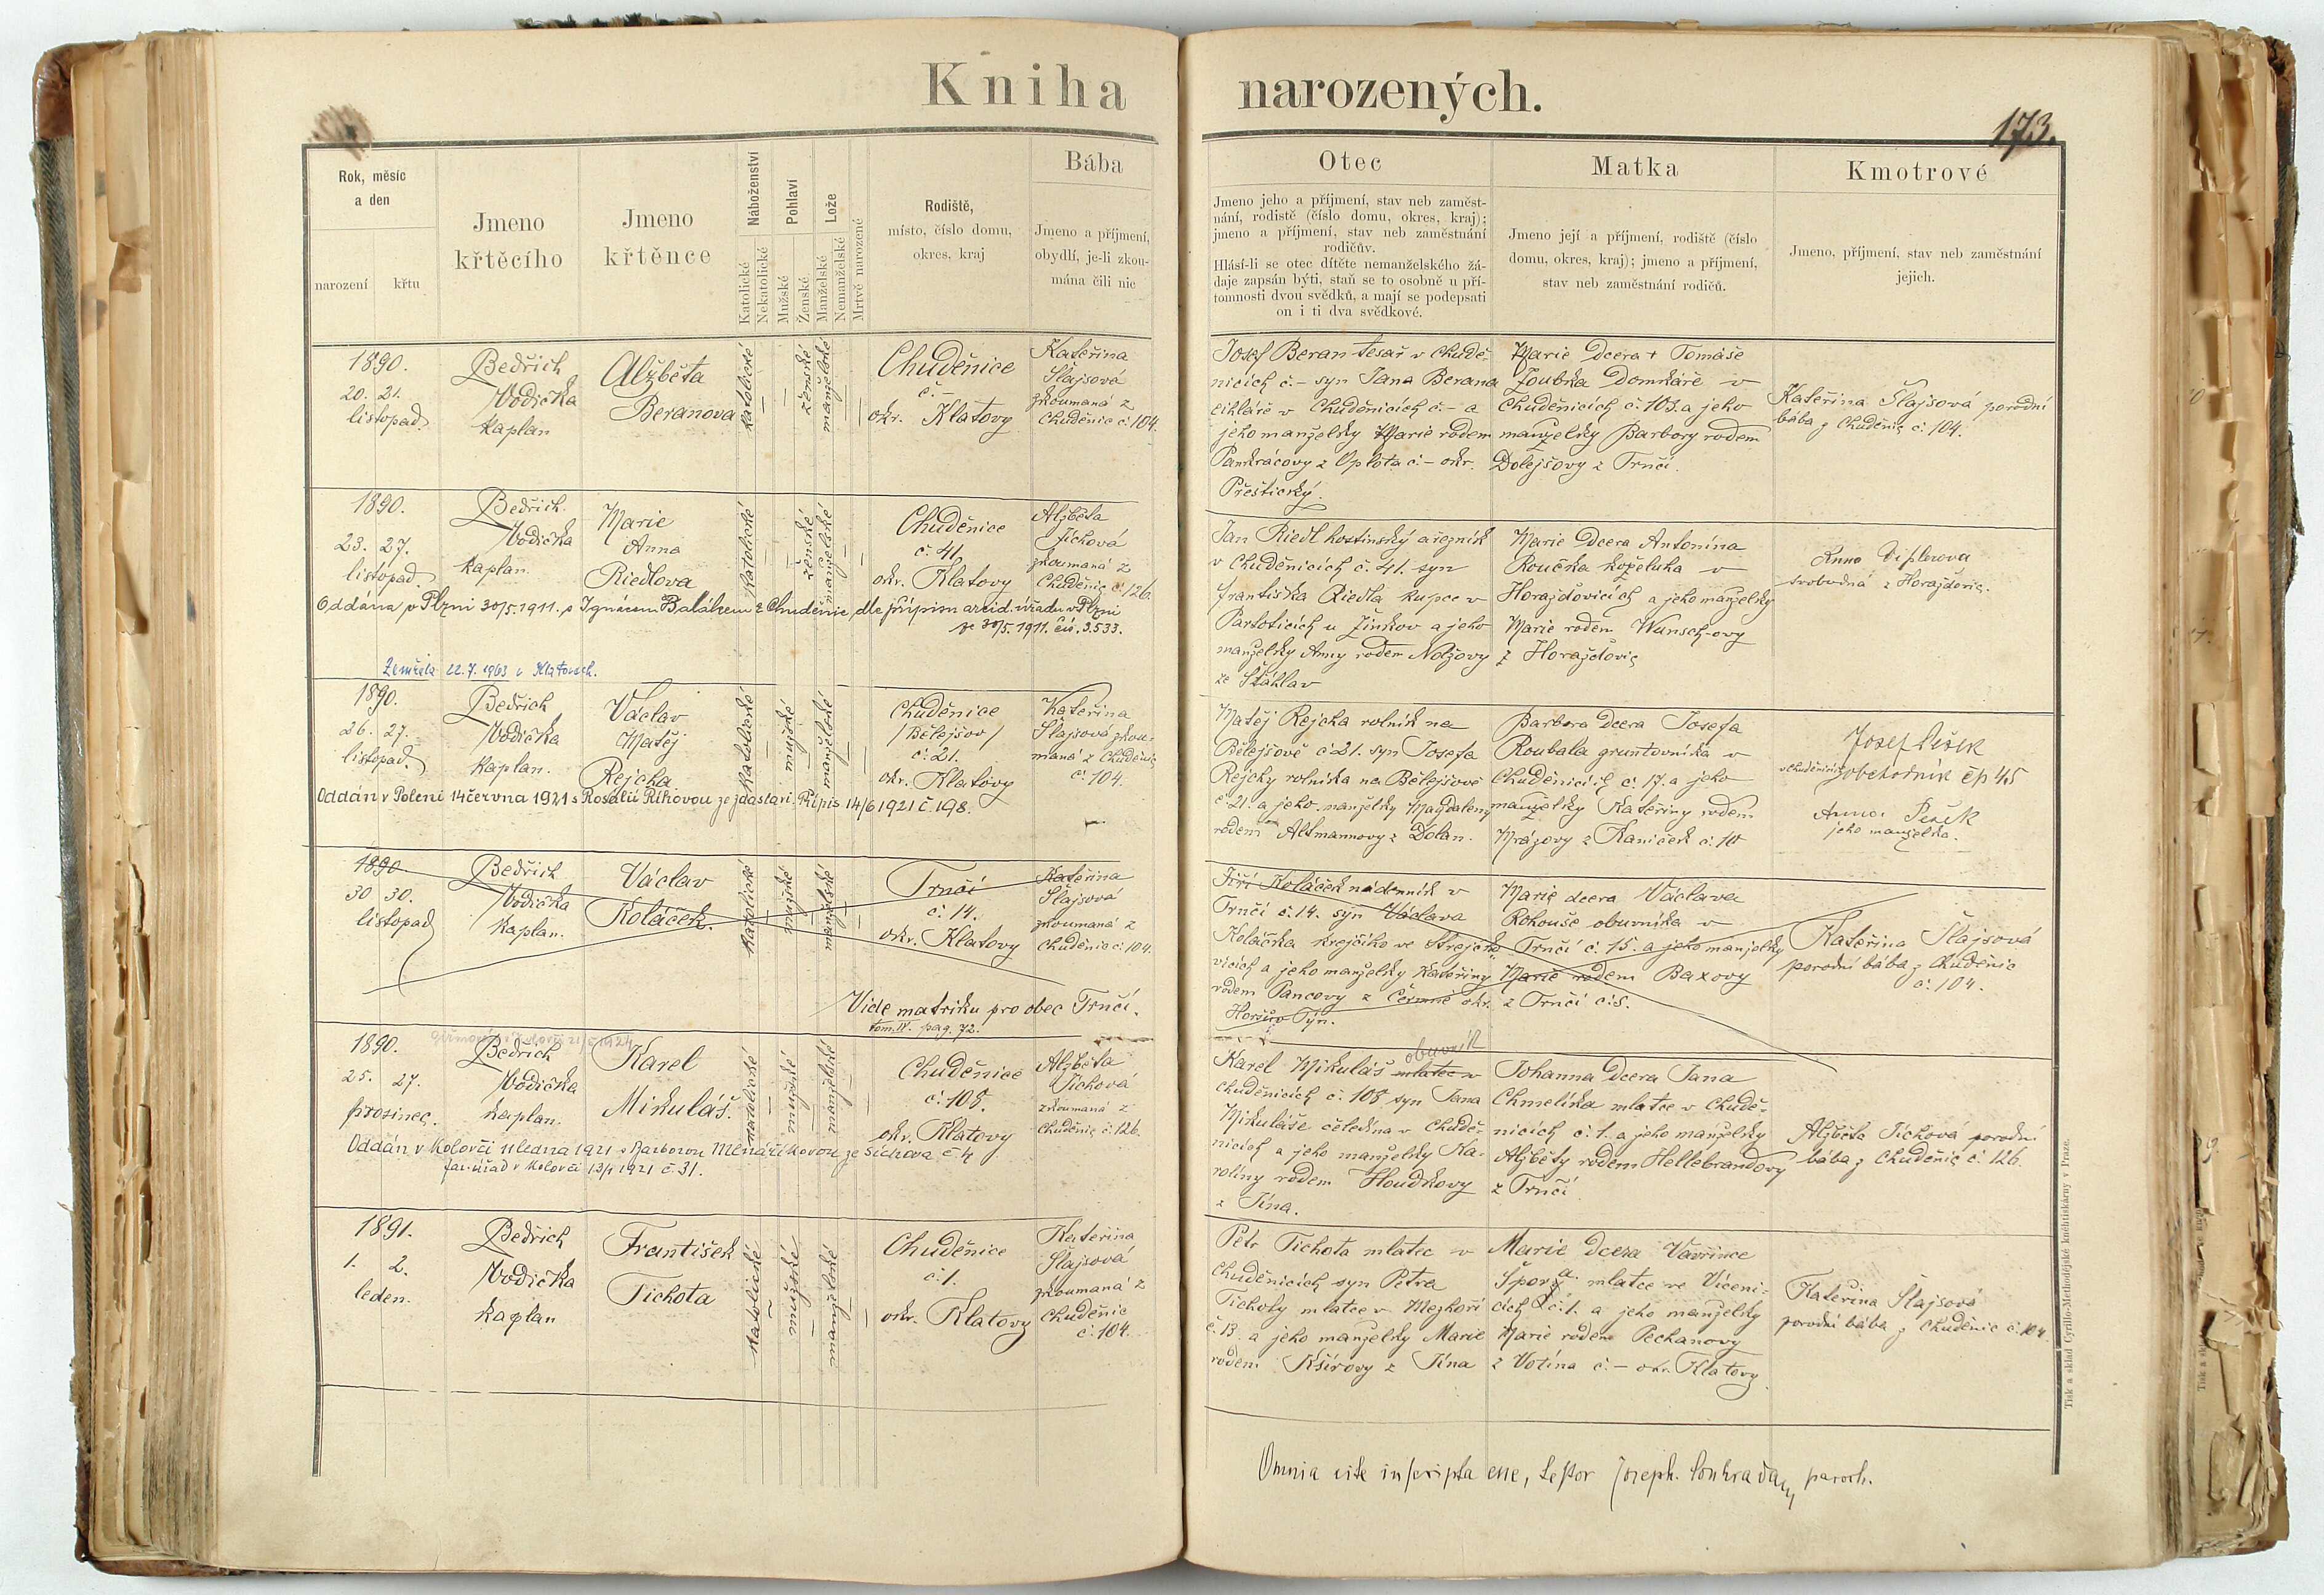 Kniha narozených.
173.
Rok, měsíc
a den
narození
křtu
Jmeno
křtěcího
Jmeno
křtěnce
Náboženství
Katolické
Nekatolické
Pohlaví
Mužské
Ženské
Lože
Manželské
Nemanželské
Mrtvě narozené
Rodiště,
místo, číslo domu,
okres, kraj
Bába
Jmeno a příjmení,
obydlí, je-li zkou-
mána čili nic
Otec
Jmeno jeho a příjmení, stav neb zaměst-
nání, rodistě (číslo domu, okres, kraj);
jmeno a příjmení, stav neb zaměstnání
rodičův.
Hlásí-li se otec dítěte nemanželského žá-
daje zapsán býti, staň se to osobně u pří-
tomnosti dvou svědků, a mají se podepsati
on i ti dva svědkové.
Matka
Jmeno její a příjmení, rodiště (číslo
domu, okres, kraj); jmeno a příjmení,
stav neb zaměstnání rodičů.
Kmotrové
Jmeno, příjmení, stav neb zaměstnání
jejich.
1890.
20. 21.
listopad.
Bedřich
Vodička
kaplan
Alžběta
Beranova
katolické
ženské
manželské
Chuděnice
č. –
okr. Klatovy
Kateřina
Šlajsová
zkoumaná z
Chuděnic č. 104.
Josef Beran tesař v Chudě-
nicích č. – syn Jana Berana
cihláře v Chuděnicích č. – a
jeho manželky Marie rodem
Pankrácovy z Oplota č. – okr.
Přeštický.
Marie dcera + Tomáše
Zoubka Domkáře v
Chuděnicích č. 103. a jeho
manželky Barbory rodem
Dolejšovy z Trnčí.
Kateřina Šlajsová porodní
bába z Chuděnic č. 104.
1890.
23. 27.
listopad
Bedřich
Vodička
kaplan.
Marie
Anna
Riedlova
katolické
ženské
manželské
Chuděnice
č. 41.
okr. Klatovy
Alžběta
Jichová
zkoumaná z
Chuděnic č. 126.
Oddána v Plzni 30/5. 1911. s Ignácem Balákem z Chuděnic, dle přípisu arcid. úřadu v Plzni
ze 30/5. 1911. čís. 3.533.
Zemřela 22.7. 1963 v Klatovech.
Jan Riedl hostinský a řezník
v Chuděnicích č. 41. syn
Františka Riedla kupce v
Partoticích u Žinkov a jeho
manželky Anny rodem Nolžovy
ze Šťáhlav
Marie dcera Antonína
Roučka koželuha v
Horažďovicích a jeho manželky
Marie rodem Wunsch-ovy
z Horažďovic
Anna
svobodná z Horažďovic.
1890.
26. 27.
listopad.
Bedřich
Vodička
kaplan.
Václav
Matěj
Rejcha
katolické
mužské
manželské
Chuděnice
/Bělejšov/
č. 21.
okr. Klatovy
Kateřina
Šlajsová zkou-
maná z Chuděnic
č. 104.
Oddán v Poleni 14 června 1921 s Rosalií Říhovou ze Zdaslavi. Přípis 14/6 1921 č. 198.
Matěj Rejcha rolník na
Bělejšově č. 21. syn Josefa
Rejchy rolníka na Bělejšově
č. 21. a jeho manželky Magdaleny
rodem Altmannovy z Dolan.
Barbora dcera Josefa
Roubala gruntovníka v
Chuděnicích č. 17. a jeho
manželky Kateřiny rodem
Mrázovy z Kaniček č. 10
Josef Pešek
v Chuděnicích obchodník čp 45
Anna Pešek
jeho manželka.
1890.
30 30.
listopad
Bedřich
Vodička
kaplan.
Václav
Koláček.
katolické
mužské
manželské
Trnčí
č. 14.
okr. Klatovy
Kateřina
Šlajsová
zkoumaná z
Chuděnic č. 104.
Vide matriku pro obec Trnčí.
tom. IV. pag. 72.
Jiří Koláček nádenník v
Trnčí č. 14. syn Václava
Koláčka krejčího ve Strejčko-
vicích a jeho manželky Kateřiny
rodem Pancovy z Čermné okr.
Horšův Týn.
Marie dcera Václava
Rohouše obuvníka v
Trnčí č. 15. a jeho manželky
Marie rodem Baxovy
z Trnčí č. 5.
Kateřina Šlajsová
porodní bába z Chuděnic
č. 104.
1890.
25. 27.
prosinec.
Bedřich
Vodička
kaplan.
Karel
Mikuláš.
katolické
mužské
manželské
Chuděnice
č. 108.
okr. Klatovy
Alžběta
Jichová
zkoumaná z
Chuděnic č. 126.
Oddán v Kolovči 11 ledna 1921 s Barborou Mlnáříkovou ze Sichova č 4
far. úřad v Kolovči 13/1 1921 č 31.
obuvník
Karel Mikuláš mlatec v
Chuděnicích č. 108 syn Jana
Mikuláše čeledína v Chudě-
nicích a jeho manželky Ka-
roliny rodem Houdkovy
z Jína.
Johanna dcera Jana
Chmelíka mlatce v Chudě-
nicích č. 1. a jeho manželky
Alžběty rodem Hellebrandovy
z Trnčí
Alžběta Jichová porodní
bába z Chuděnic č. 126.
1891.
1. 2.
leden.
Bedřich
Vodička
kaplan
František
Tichota
katolické
mužské
manželské
Chuděnice
č. 1.
okr. Klatovy
Kateřina
Šlajsová
zkoumaná z
Chuděnic
č. 104.
Petr Tichota mlatec v
Chuděnicích syn Petra
Tichoty mlatce v Mezhoří
č. 13. a jeho manželky Marie
rodem Kšírovy z Jína
Marie dcera Vavřince
mlatce ve Víceni-
cích č. 1. a jeho manželky
Marie rodem Pechanovy
z Votína č. – okr. Klatovy.
Kateřina Šlajsová
porodní bába z Chuděnic č. 104.
Omnia rite inscripta esse, testor Joseph. Soukradan, paroch.
Tisk a sklad Cyrillo-Methodějské knihtiskárny v Praze.